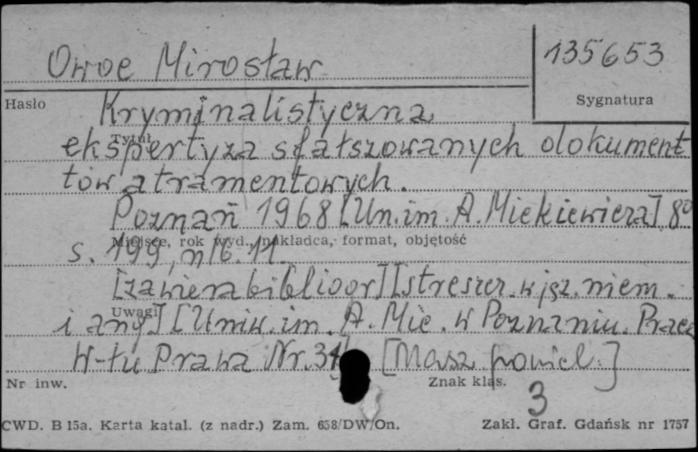 Owoc Mirosław
135653
Hasło
Sygnatura
Kryminalistyczna
Tytuł
ekspertyza sfałszowanych dokument
tów atramentowych.
Poznań 1968 [Un. im. A. Mickiewicza] 8°
Miejsce, rok wyd., nakładca, format, objętość
s. 199, nlb. 11.
[zawiera bibliogr] [streszcz. w jęz. niem.
Uwagi
i ang] [Uniw. im. A. Mic. w Poznaniu. Prace
W-łu Prawa Nr. [Masz. powiel.]
Nr inw.
Znak klas.
3
CWD. B 15a. Karta katal. (z nadr.) Zam. 658/DW/On.
Zakł. Graf. Gdańsk nr 1757